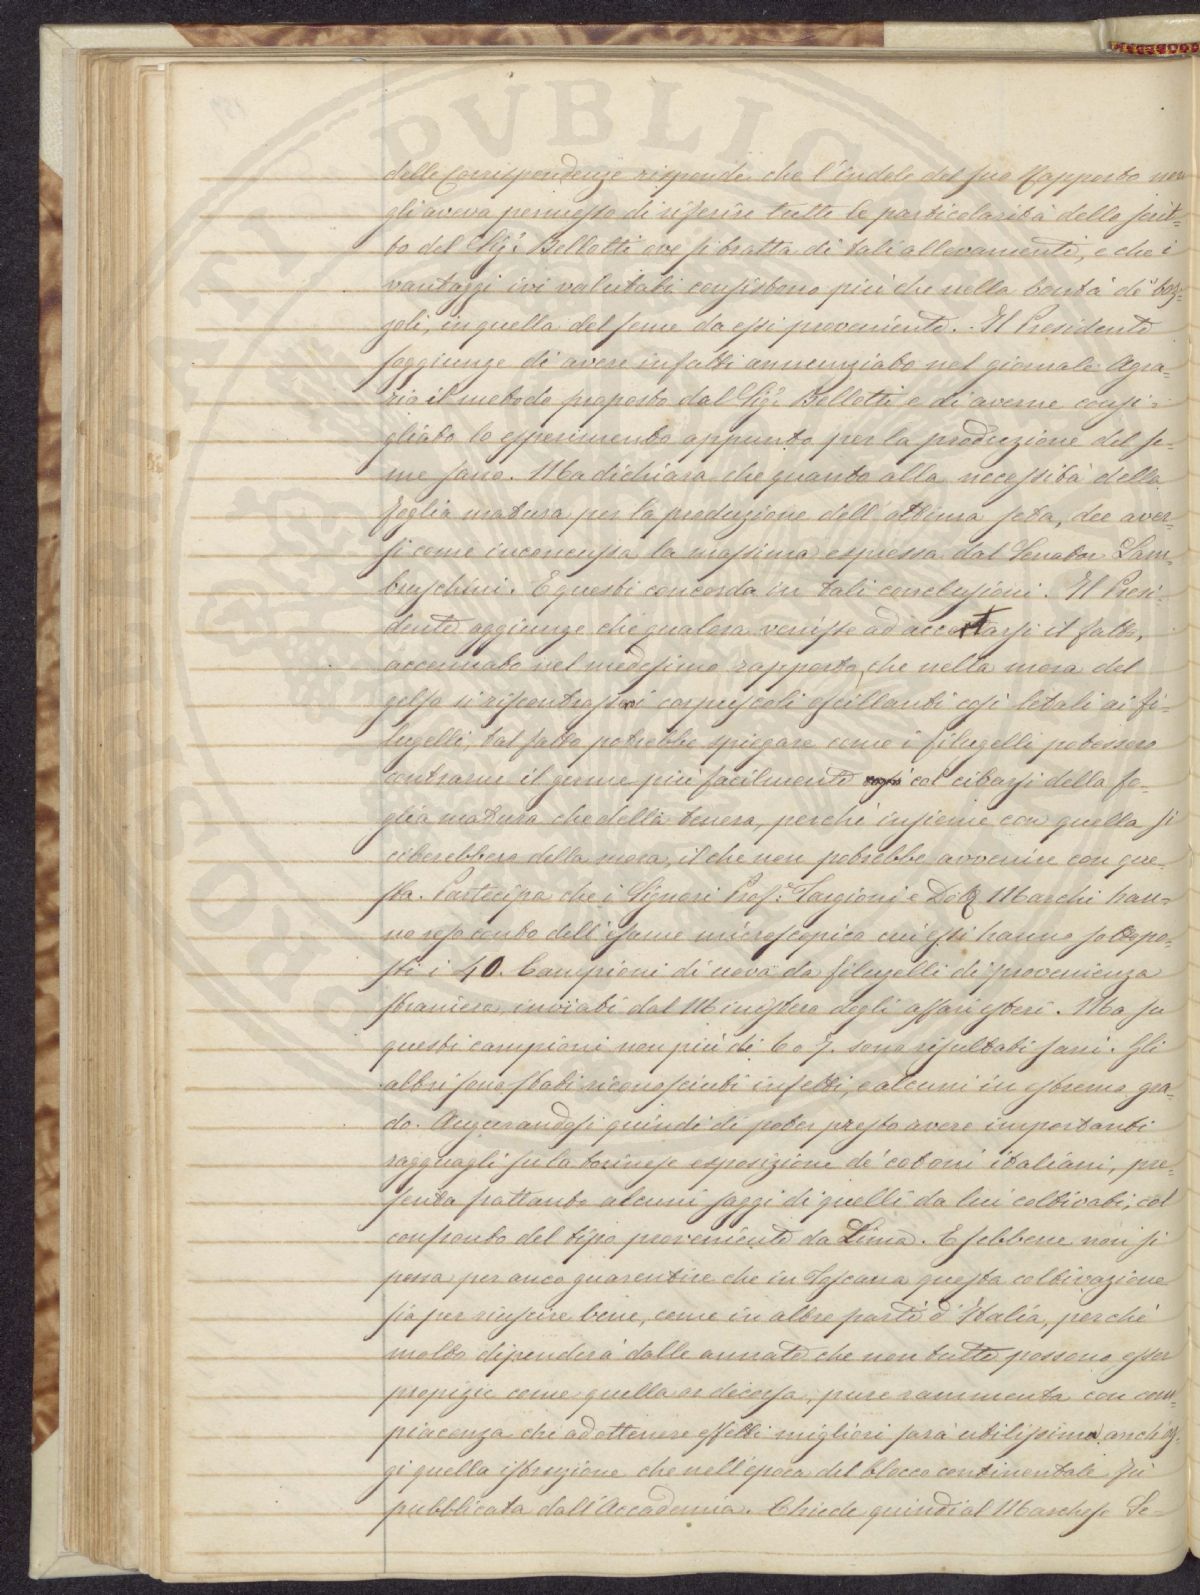 PVBLIC
delle Corrispondenze risponde che l'indole del suo Rapporto non
gli aveva permesso di riferire tutte le particolarità dello scrit=
to del Sig.r Bellotti ove si tratta di tali allevamenti, e che i
vantaggi ivi valutati consistono più che nella bontà de' boz=
zoli, in quella del seme da essi proveniente. Il Presidente
soggiunge di avere infatti annunziato nel giornale Agra=
rio il metodo proposto dal Sig.r Bellotti e di averne consi=
gliato lo esperimento appunto per la produzione del se=
me sano. Ma dichiara che quanto alla necessità della
foglia matura per la produzione dell'ottima seta, dee aver=
si come inconcussa la massima espressa dal Senator Lam=
bruschini. E questi concorda in tali conclusioni. Il Presi=
dente aggiunge che qualora venisse ad accertarsi il fatto,
accennato nel medesimo rapporto, che nella mora del
gelso si riscontrassero i corpuscoli oscillanti così letali ai fi=
lugelli, tal fatto potrebbe spiegare come i filugelli potessero
contrarne il germe più facilmente col cibarsi della fo=
glia matura che della tenera, perchè insieme con quella si
ciberebbero della mora, il che non potrebbe avvenire con que=
sta. Partecipa che i Signori Prof.r Targioni e Dott. Marchi han=
no reso conto dell'esame microscopico cui essi hanno sottopo=
sti i 40. Campioni di uova da filugelli di provenienza
straniera inviati dal Ministero degli affari esteri. Ma su
questi campioni non più di 6 o 7. sono risultati sani. Gli
altri sono stati riconosciuti infetti, e alcuni in estremo gra=
do. Augurandosi quindi di poter presto avere importanti
ragguagli su la torinese esposizione de' cotoni italiani, pre=
senta frattanto alcuni saggi di quelli da lui coltivati, col
confronto del tipo proveniente da Lima. E sebbene non si
possa per anco guarentire che in Toscana questa coltivazione
sia per riuscire bene, come in altre parti d'Italia, perchè
molto dipenderà dalle annate che non tutte possono esser
propizie come quella or decorsa, pure rammenta con com=
piacenza che ad ottenere effetti migliori sarà utilissima anch'og=
gi quella istruzione che nell'epoca del blocco continentale fu
pubblicata dall'Accademia. Chiede quindi al Marchese Se=